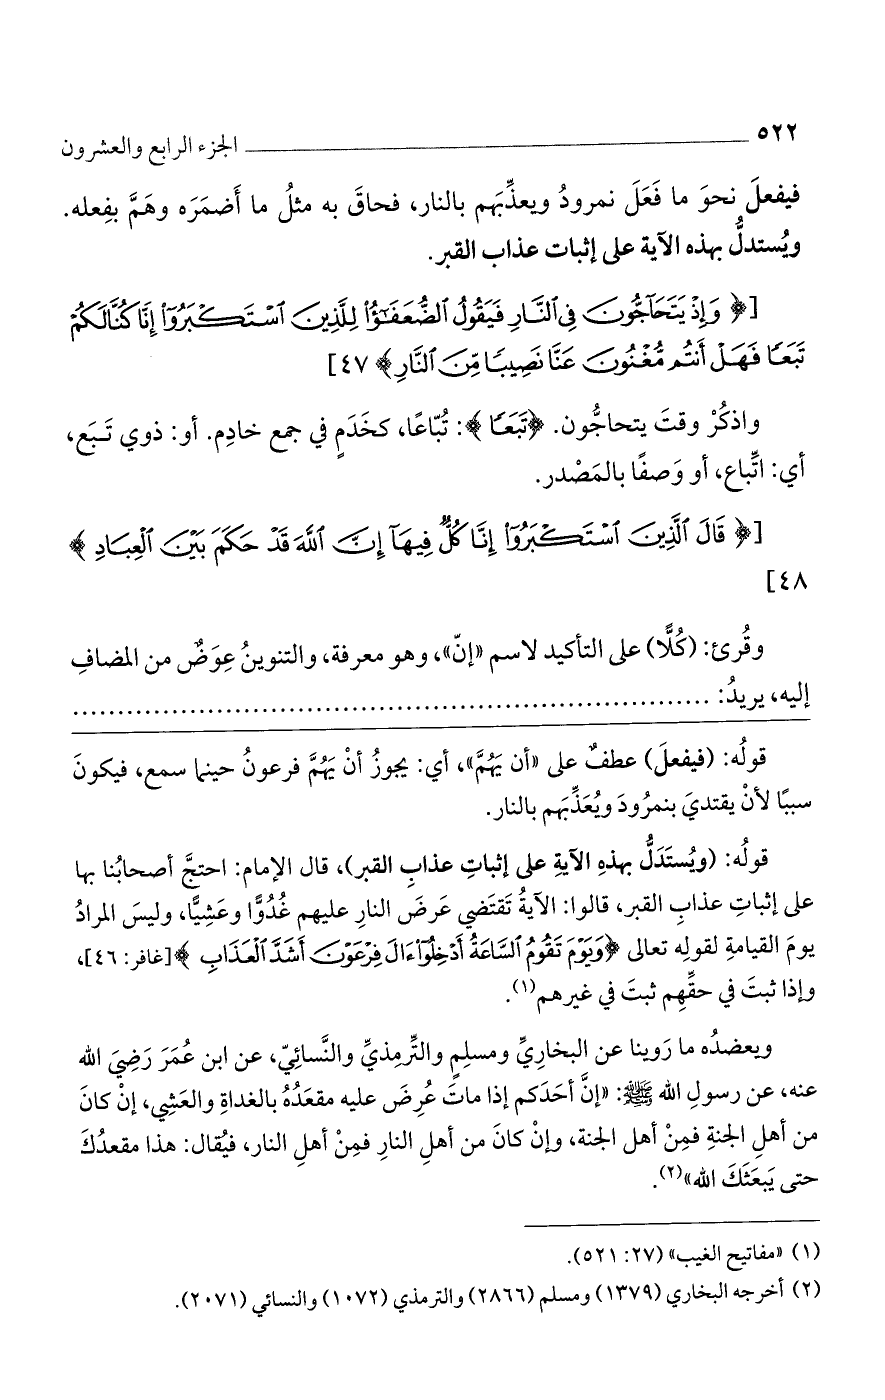 ٥٢٢ ــــــ الجزء الرابع والعشرون
فيفعلَ نحوَ ما فَعَلَ نمرودُ ويعذِّبَهم بالنار، فحاقَ به مثلُ ما أَضمَرَه وهَمَّ بفِعله.
ويُستدلُّ بهذه الآية على إثبات عذاب القبر.
[﴿ وَإِذْ يَتَحَآجُّونَ فِى ٱلنَّارِ فَيَقُولُ ٱلضُّعَفَـٰٓؤُا۟ لِلَّذِينَ ٱسْتَكْبَرُوٓا۟ إِنَّا كُنَّا لَكُمْ
تَبَعًا فَهَلْ أَنتُم مُّغْنُونَ عَنَّا نَصِيبًا مِّنَ ٱلنَّارِ﴾ ٤٧]
واذكُرْ وقتَ يتحاجُّون. ﴿تَبَعًا ﴾: تُبّاعًا، كخَدَمٍ في جمع خادِم. أو: ذوي تَبَع،
أي: اتِّباع، أو وَصفًا بالمَصْدر.
[﴿ قَالَ ٱلَّذِينَ ٱسْتَكْبَرُوٓا۟ إِنَّا كُلٌّ فِيهَآ إِنَّ ٱللَّهَ قَدْ حَكَمَ بَيْنَ ٱلْعِبَادِ ﴾
٤٨]
وقُرئ: (كُلًّا) على التأكيد لاسم «إنّ»، وهو معرفة، والتنوينُ عِوَضٌ من المضافِ
إليه، يريدُ: ......................................................................
قولُه: (فيفعلَ) عطفٌ على «أن يَهُمَّ»، أي: يجوزُ أنْ يَهُمَّ فرعونُ حينما سمع، فيكونَ
سببًا لأنْ يقتديَ بنمرُودَ ويُعَذِّبَهم بالنار.
قولُه: (ويُستَدَلُّ بهذِه الآيةِ على إثباتِ عذابِ القبر)، قال الإمام: احتجَّ أصحابُنا بها
على إثباتِ عذابِ القبر، قالوا: الآيةُ تَقتَضي عَرضَ النارِ عليهم غُدُوًّا وعَشِيًّا، وليسَ المرادُ
يومَ القيامةِ لقولِه تعالى ﴿وَيَوْمَ تَقُومُ ٱلسَّاعَةُ أَدْخِلُوٓا۟ ءَالَ فِرْعَوْنَ أَشَدَّ ٱلْعَذَابِ ﴾[غافر: ٤٦]،
وإذا ثبتَ في حقِّهِم ثبتَ في غيرهم(١).
ويعضدُه ما رَوينا عن البخاريِّ ومسلِمٍ والتِّرمِذيِّ والنَّسائِيّ، عن ابن عُمَرَ رَضِيَ الله
عنه، عن رسولِ الله ﷺ: «إنَّ أحَدَكم إذا ماتَ عُرِضَ عليه مقعَدُهُ بالغداةِ والعَشِي، إنْ كانَ
من أهلِ الجنةِ فمِنْ أهل الجنة، وإنْ كانَ من أهلِ النارِ فمِنْ أهلِ النار، فيُقال: هذا مقعدُكَ
حتى يَبعَثَكَ الله»(٢).
(١) «مفاتيح الغيب» (٢٧: ٥٢١).
(٢) أخرجه البخاري (١٣٧٩) ومسلم (٢٨٦٦) والترمذي (١٠٧٢) والنسائي (٢٠٧١).